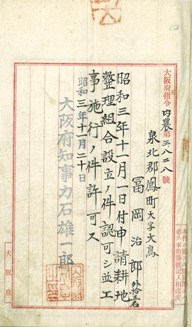 大阪府指令内農第三八二八號
泉北郡鳳町大字大鳥
冨岡治郎外拾壱名
昭和三年十一月一日付申請耕地
整理組合設立ノ件認可シ並工
事施行ノ件許可ス
昭和三年十一月二十日
大阪府知事力石雄一郎
大阪府